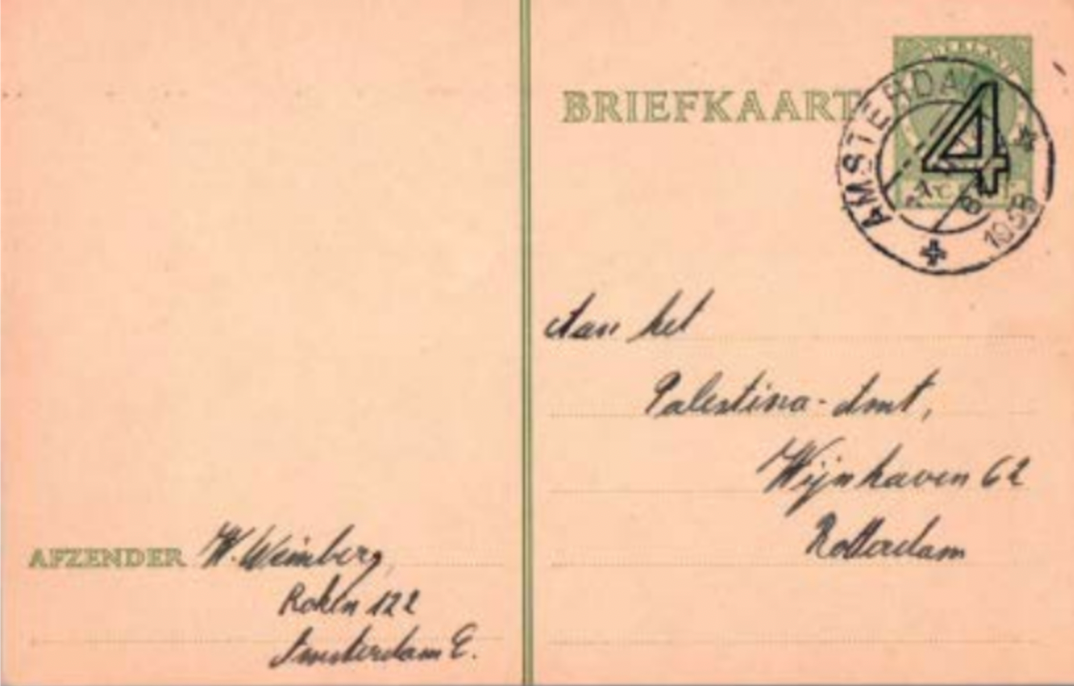 BRIEFKAART
NEDERLAND
AMSTERDAM
4
8
Aan het
Palestina-Amt,
Wijnhaven 62
Rotterdam
AFZENDER W. Weinberg,
Rokin 122
Amsterdam C.